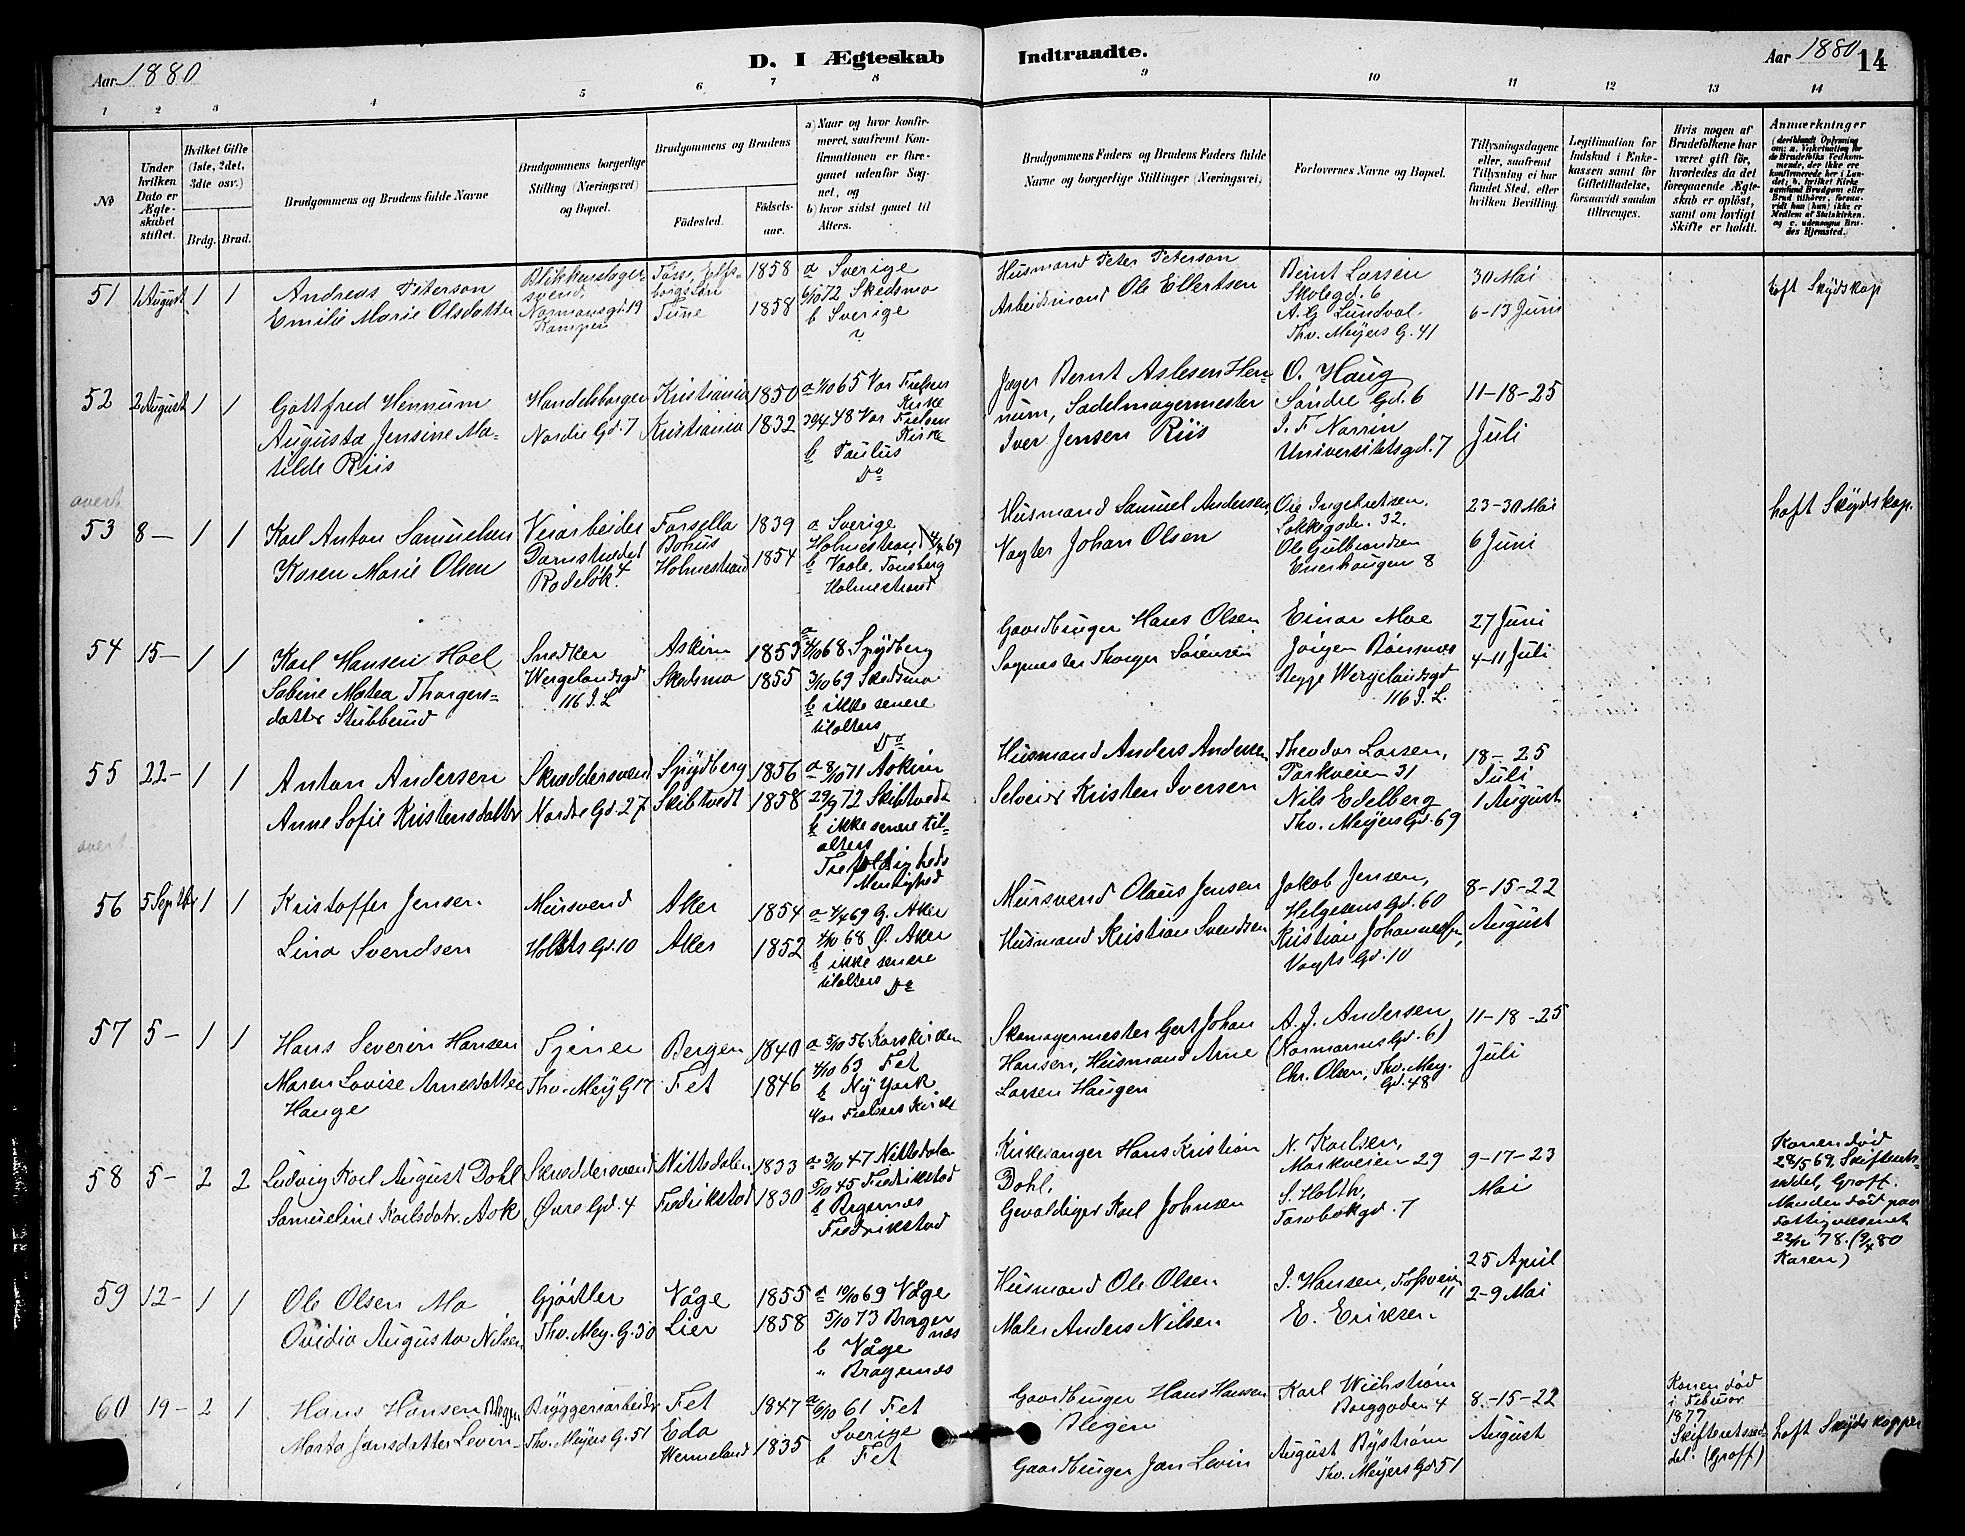 Aar 1880
D. I Ægteskab Indtraadte.
Aar 1880
14
1 2 3 4 5 6 7 8 9 10 11 12 13 14
No
Under hvilken Dato er Ægteskabet stiftet.
Hvilket Gifte (1ste, 2det, 3die osv.)
Brdg. Brud.
Brudgommens og Brudens fulde Navne
Brudgommens borgerlige Stilling (Næringsvei) og Bopæl.
Brudgommens og Brudens
Fødested.
Fødsels-aar.
a) Naar og hvor konfirmeret, saafremt Konfirmationen er foregaaet udenfor Sognet, og
b) hvor sidst gaaet til Alters.
Brudgommens Faders og Brudens Faders fulde Navne og borgerlige Stillinger (Næringsvei)
Forlovernes Navne og Bopæl.
Tillysningsdagene eller, saafremt Tillysning ei har fundet Sted, efter hvilken Bevilling.
Legitimation for Indskud i Enkekassen samt for Giftetilladelse, forsaavidt saadan tiltrænges.
Hvis nogen af Brudefolkene har været gift før, hvorledes da det foregaaende Ægteskab er opløst, samt om lovligt Skifte er holdt.
Anmærkninger
(deriblandt Oplysning om: a. Vakcination for de Brudefolks Vedkommende, der ikke ere konfirmerede her i Landet; b. hvilket Kirkesamfund Brudgom eller Brud tilhører, forsaavidt han (hun) ikke er Medlem af Statskirken, og c. udensogns Brudes Hjemsted.)
51 1 August 1 1
Andreas Peterson
Emilie Marie Olsdatter
Blikkenslagersvend,
Normansgd. 19
Kampen
Tune
1858
1858
a Sverige
6/10 72 Skedsmo
b Sverige
Husmand Peter Peterson
Arbeidsmand Ole Ellertsen
Bernt Larsen
Skolegd. 6
A. G. Lundval
Thv. Meyers G. 41
30 Mai
6-13 Juni
haft Skydskop
52 2 August 1 1
Gottfred Hennum
Augusta Jensine Matilde Riis
Handelsborger
Nordre Gd. 7
Kristiania
Kristiania
1850
1832
a 1/10 65 Vor Frelsers Kirke
30/4 48 Vor Frelsers Kirke
b Paulus
Do
Jæger Bernt Aslesen Hennum, Sadelmagermester
Iver Jensen Riis
O. Haug
Søndre Gd. 6
J. F. Narrin
Universitetsgd. 7
11-18-25
Juli
avert
53 8 — 1 1
Karl Anton Samuelsen
Karen Marie Olsen
Veiarbeider
Damstrædet
Rodeløk 4
Forsella
Bohus
Holmestrand
1839
1854
a Sverige
Holmestrand 4/4 69
b Vaale, Tønsberg
Holmestrand
Husmand Samuel Andersen
Vagter Johan Olsen
Ole Ingebretsen
Sokkegade. 32.
Ole Gulbrandsen
Enerhaugen 8
23-30 Mai
6 Juni
haft Skydskop.
54 15 — 1 1
Karl Hansen Hoel
Sabine Matea Thorgersdatter Stubberud
Snedker
Wergelandsgd
116 J. L
Askim
Skedsmo
1853
1855
a 4/10 68 Spydberg
3/10 69 Skedsmo
b ikke senere
tilalters
Do
Gaardbruger Hans Olsen
Sagmester Thorger Sørensen
Einar Moe
Jørgen Bønsnæs
Begge Wergelandsgd
116 J. L.
27 Juni
4-11 Juli
55 22 - 1 1
Anton Andersen
Anne Sofie Kristensdatter
Skræddersvend
Nordre Gd. 27
Spydberg
Skibtvedt
1856
1858
a 8/10 71 Askim
29/9 72 Skibtvedt
b ikke senere tilalters
Trefoldigheds
Menighed
Husmand Anders Andersen
Selveier Kristen Iversen
Theodor Larsen,
Parkveien 31
Nils Edelberg
Thv. Meyers Gd. 69
18-25
Juli
1 August
avert.
56 5 Septbr 1 1
Kristoffer Jensen
Lina Svendsen
Mursvend
Holsts Gd. 10
Aker
Aker
1854
1852
a 4/4 69 G. Aker
4/10 68 Ø. Aker
b ikke senere
tilalters Do
Mursvend Olaus Jensen
Husmand Kristian Svendsen
Jakob Jensen,
Helgesens Gd. 60
Kristian Johannessen,
Vogts Gd. 10
8-15-22
August
57 5 - 1 1
Hans Severin Hansen
Maren Lovise Arnesdatter
Hauge
Tjener
Thv. Mey G 17
Bergen
Fet
1840
1846
a 5/10 56 Korskirken
4/10 63 Fet
b Ny York
Vor Frelsers Kirke
Skomagermester Gert Johan
Hansen, Husmand Arne
Larsen Haugen
A. J. Andersen
(Normanns Gd. 6)
Chr. Olsen, Thv. Mey.
Gd. 48
11-18-25
Juli
58 5 - 2 2
Ludvig Karl August Dohl
Samueline Karlsdatr. Ask
Skræddersvend
Øvre Gd. 4
Nittedalen
Fredrikstad
1833
1830
a 3/10 47 Nittedalen
5/10 45 Fredrikstad
b Bragernes
Fredrikstad
Kirkesanger Hans Kristian
Dohl,
Gevaldiger Karl Johnsen
N. Karlsen,
Markveien 29
S. Holth,
Torvbakgd. 7
9-17-23
Mai
Konen død
28/5 69. Skifteretsseddel, Groff.
Manden død paa
Fattigvæsenet
22/12 78. (9/4 80
Karen)
59 12 - 1 1
Ole Olsen Mo
Ovidia Augusta Nilsen
Gjørtler
Thv. Mey. G. 30
Våge
Lier
1855
1858
a 10/10 69 Våge
5/10 73 Bragernæs
b Våge
" Bragernæs
Husmand Ole Olsen
Maler Anders Nilsen
J. Hansen, Fossveien 11
E. Eriksen
25 April
2-9 Mai
60 19 - 2 1
Hans Hansen
Marta Jansdatter Levin
Bryggeriarbeider
Thv. Meyers G. 51
Fet
Eda
Wermeland
1847
1835
a 6/10 61 Fet
Sverige
b Fet
Gaardbruger Hans Hansen
Hegen
Gaardbruger Jan Levin
Karl Wickstrøm
Borggaden 4
August Bystrøm
Thv. Meyers Gd 51
8-15-22
August
Konen død
i Februar
1877
Skifteretsseddel. (Groff)
haft Skydskopper